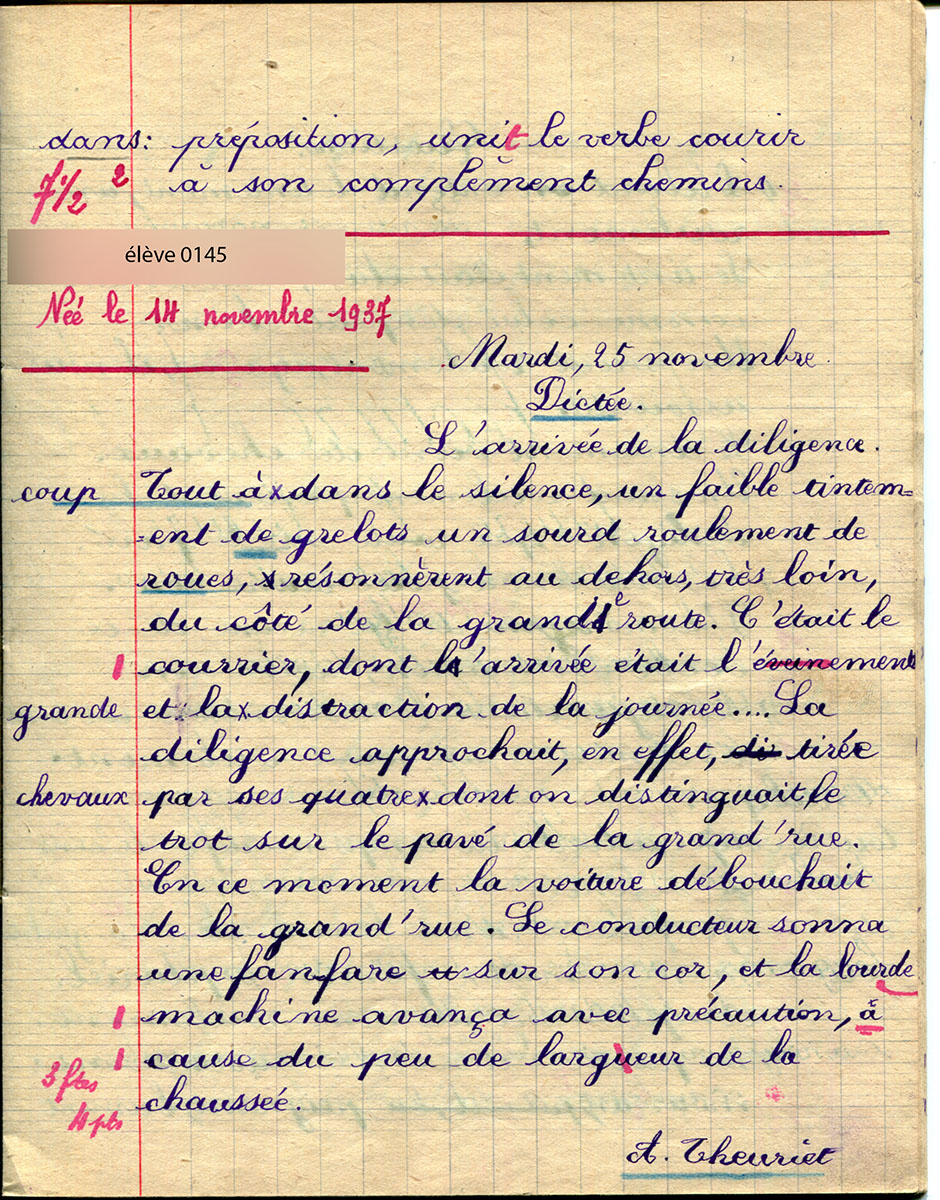 dans: préposition, unit le verbe courir
7 1/2 2 à son complèment chemins.
élève 0145
Née le 14 novembre 1937
Mardi, 25 novembre.
Dictée.
L'arrivée de la diligence.
coup Tout à x dans le silence, un faible tintem=
=ent de grelots un sourd roulement de
roues, résonnèrent au dehors, très loin,
du côté de la grande route. C'était le
1 courrier, dont l'arrivée était l'éveinement
grande et la x distraction de la journée.... La
diligence approchait, en effet, di tirée
chevaux par ses quatre x dont on distinguait le
trot sur le pavé de la grand'rue.
En ce moment la voiture débouchait
de la grand'rue. Le conducteur sonna
une fanfare sur son cor, et la lourde
1 machine avança avec précaution, à
1 cause du peu de largueur de la
3 ftes chaussée.
4 pts
A. Theuriet